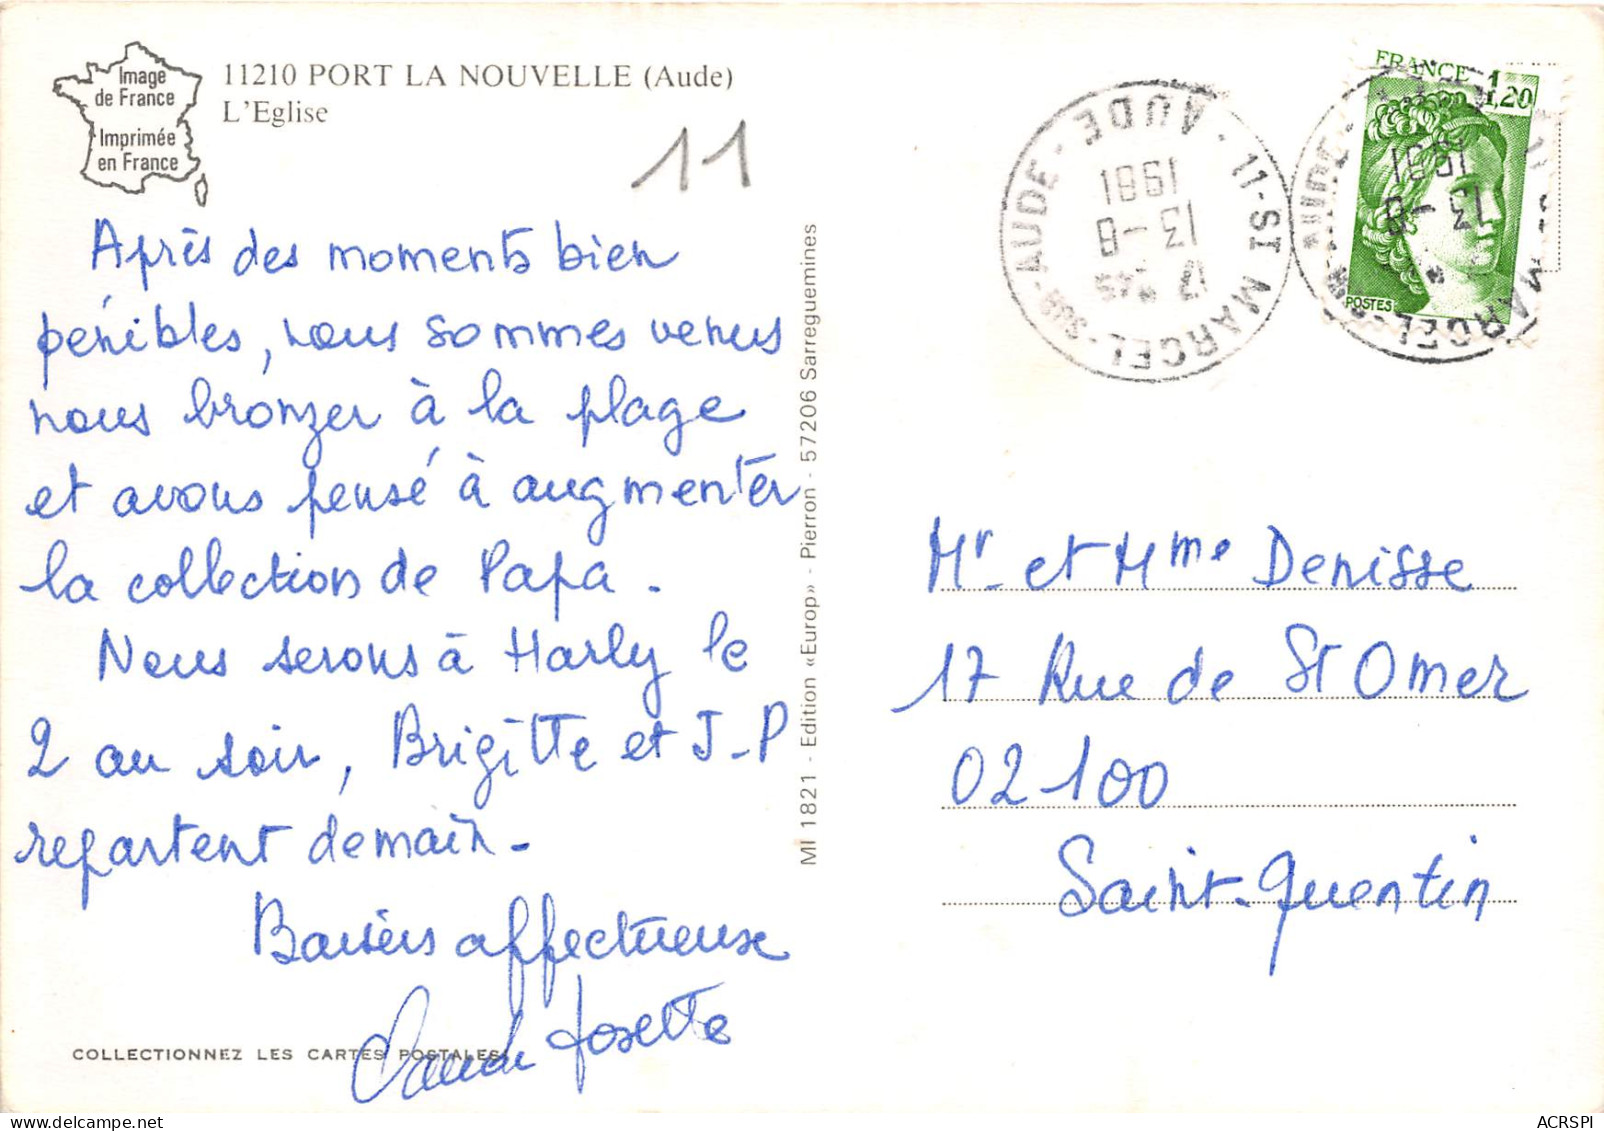 Image
de France
Imprimée
en France
11210 PORT LA NOUVELLE (Aude)
L'Eglise
11
Après des moments bien
pénibles, nous sommes venus
nous bronzer à la plage
et avons pensé à augmenter
la collection de Papa.
Nous serons à Harly le
2 au soir, Brigitte et J-P
repartent demain.
Baisers affectueux
Claude Josette
COLLECTIONNEZ LES CARTES POSTALES
MI 1821 - Edition «Europ» - Pierron - 57206 Sarreguemines
11-ST MARCEL-SUR-AUDE - AUDE -
17 H 45
13-8
1981
FRANCE 1,20
POSTES
13-8
1981
Mr et Mme Denisse
17 Rue de St Omer
02100
Saint-Quentin
ACRSPI